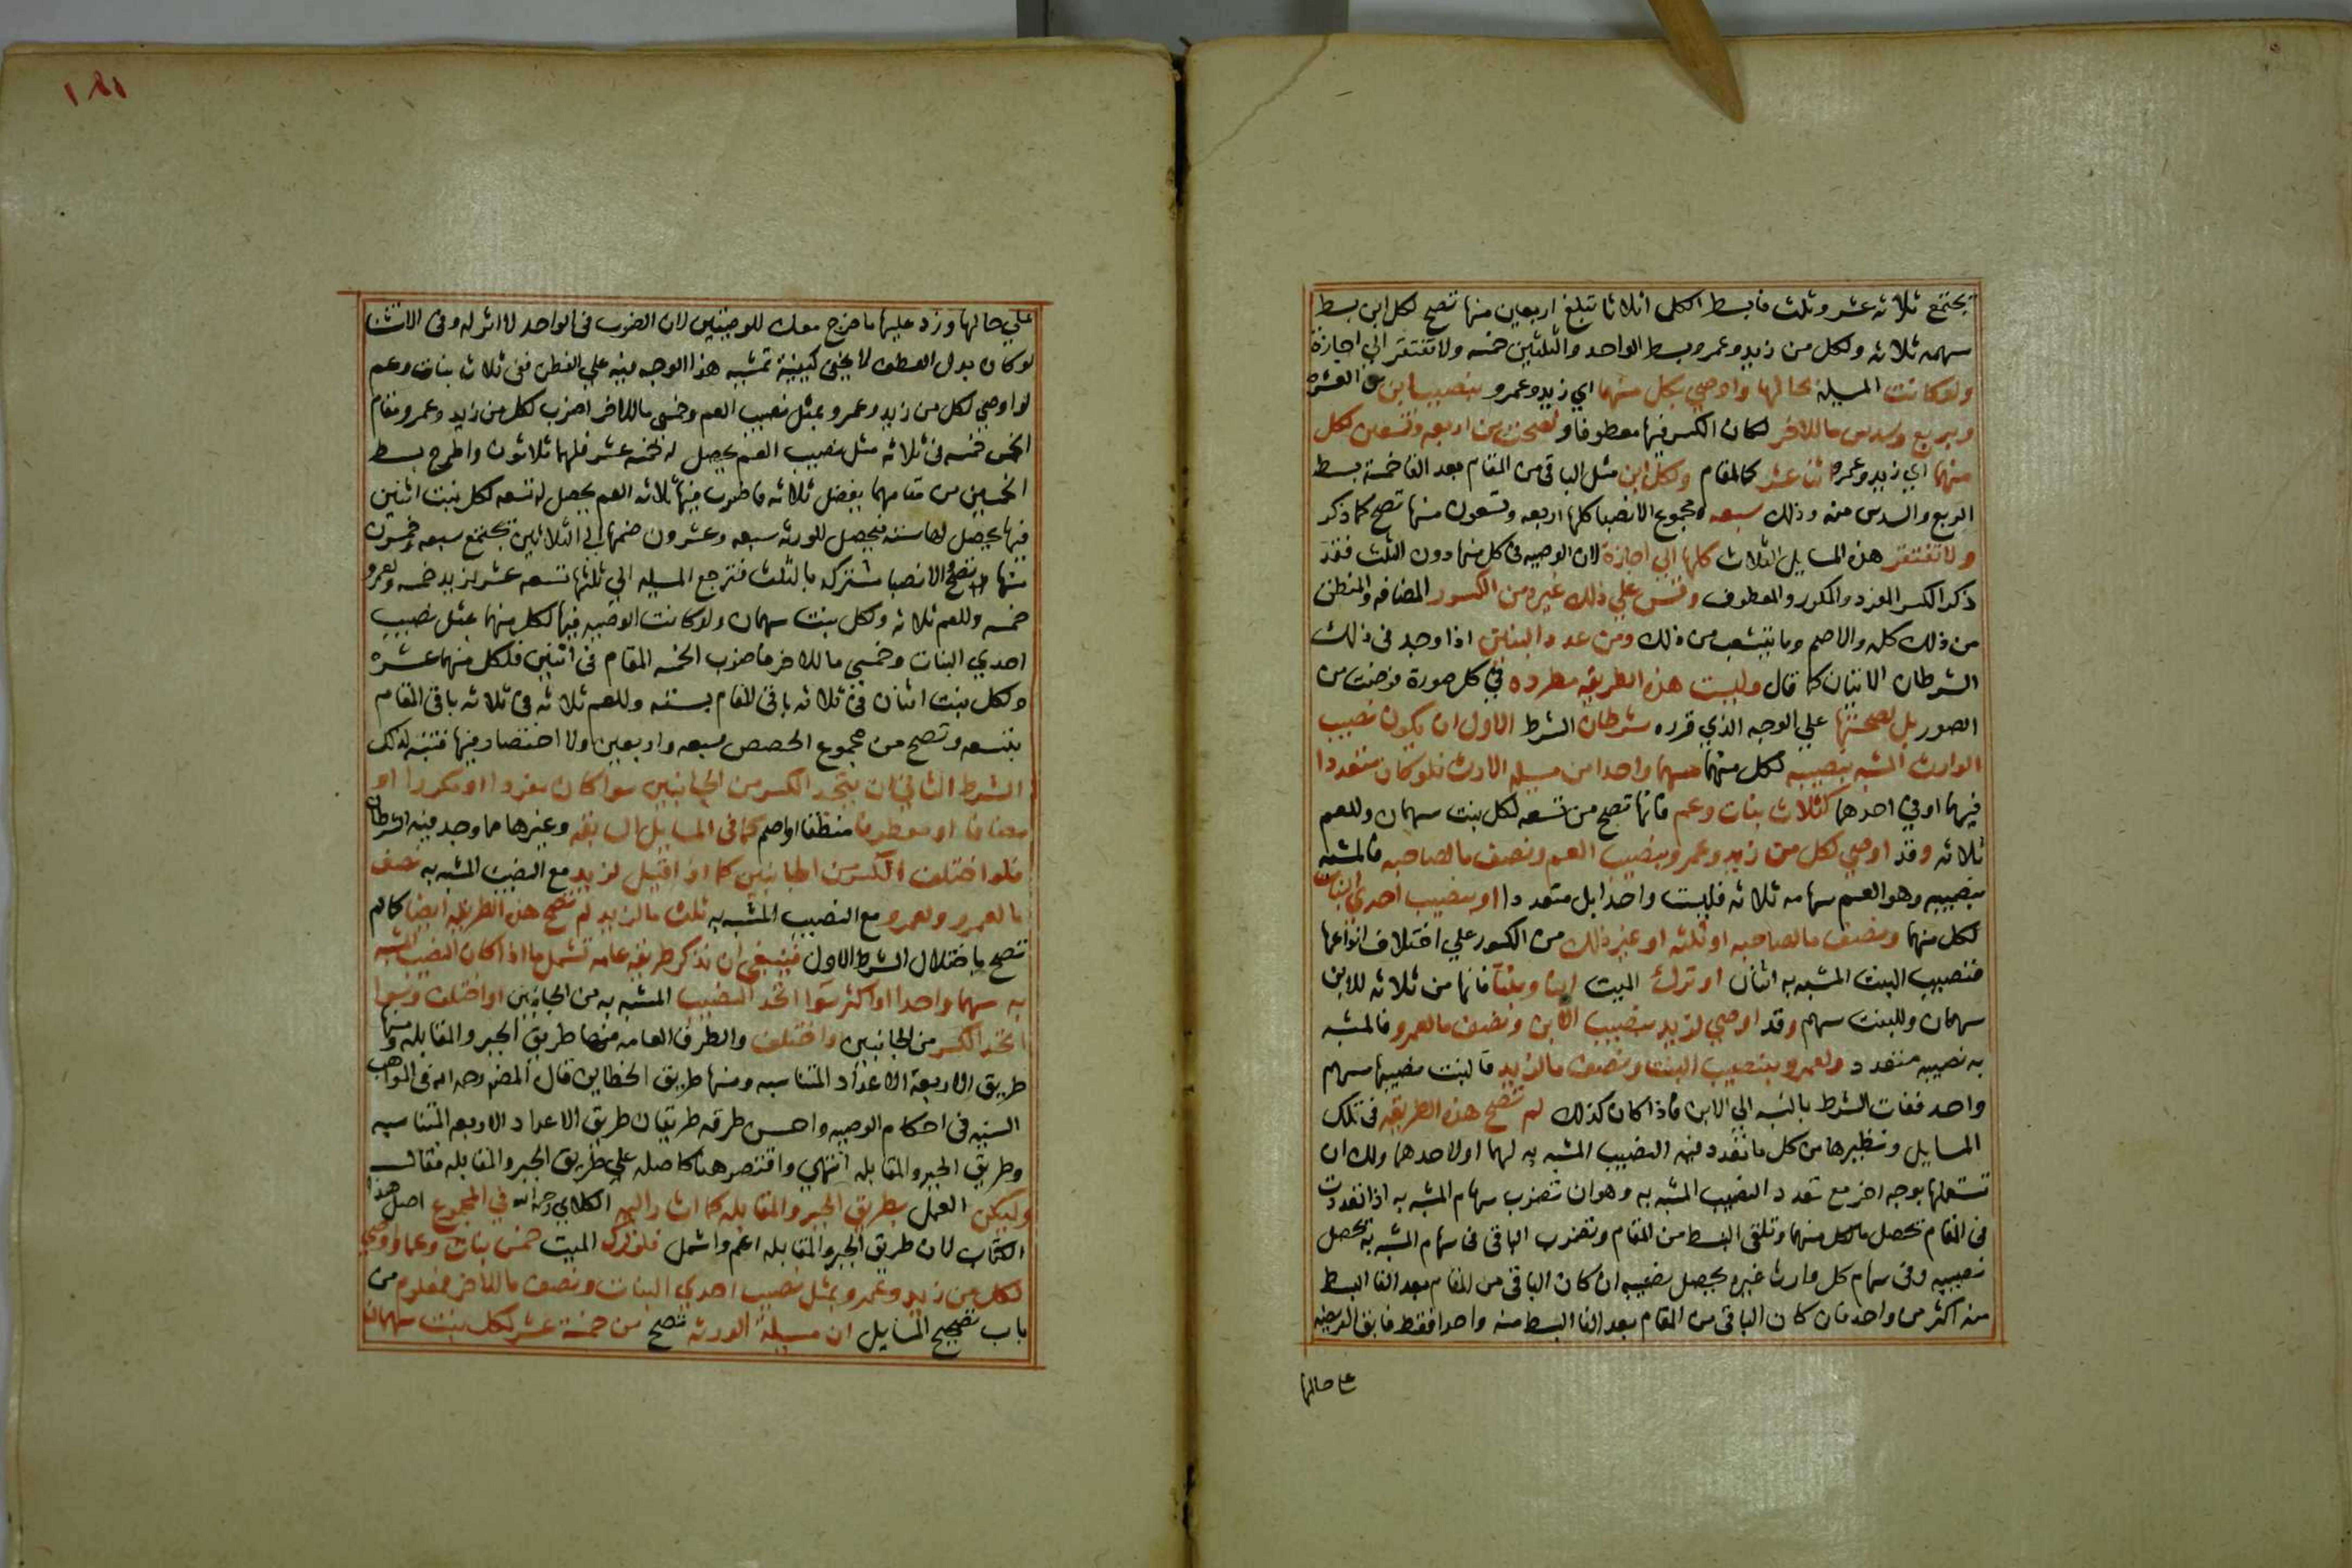 تجتمع ثلاثه عشر وثلث فابسط الكل اثلاثا تبلغ اربعين منها تصح لكل ابن بسط
سهمه ثلاثه ولكل من زيد وعمرو بسط الواحد والثلثين خمسه ولا تفتقر الي اجازة
ولو كانت المسيلة بحالها واوصي لكل منهما اي زيد وعمرو بنصيب ابن من العشره
وبربع وسدس ما للاخر لكان الكسر فيها معطوفا ولصحت من اربعه وتسعين لكل
منهما اي زيد وعمرو اثنا عشر كالمقام ولكل ابن مثل الباقي من المقام بعد القا خمسة بسط
الربع والسدس منه وذلك سبعه ومجموع الانصبا كلها اربعه وتسعون منها تصح كما ذكر
ولا تفتقر هذه المسايل الثلاث كلها الي اجازة لان الوصيه في كل منها دون الثلث فقد
ذكر الكسر المفرد والمكرر والمعطوف وقس علي ذلك غيره من الكسور المضافه والمنطق
من ذلك كله والاصم وما يتشعب من ذلك ومن عدد البنين اذا وجد في ذلك
الشرطان الاتيان كما قال وليست هذه الطريقه مطرده في كل صورة فرضت من
الصور بل لصحتها علي الوجه الذي قرره شرطان الشرط الاول ان يكون نصيب
الوارث المشبه بنصيبه لكل منهما سهما واحدا من مسيله الارث فلو كان متعددا
فيهما او في احدهما كثلاث بنات وعم فانها تصح من تسعه لكل بنت سهمان وللعم
ثلاثه وقد اوصي لكل من زيد وعمرو بنصيب العم ونصف ما لصاحبه فالمشبه
بنصيبه وهو العم سهامه ثلاثه فليست واحدا بل متعددا او بنصيب احدي البنات
لكل منهما وبنصف ما لصاحبه او ثلثه او غير ذلك من الكسور علي اختلاف انواعها
فنصيب البنت المشبه به اثنان او ترك الميت ابنا وبنتا فانها من ثلاثه للابن
سهمان وللبنت سهم وقد اوصي لزيد بنصيب الابن ونصف ما لعمرو فالمشبه
به نصيبه متعدد ولعمرو بنصيب البنت ونصف ما لزيد فالبنت نصيبها سهم
واحد ففات الشرط بالنسبه الي الابن فاذا كان كذلك لم تصح هذه الطريقه في تلك
المسايل ونظيرها من كل ما تعدد فيه النصيب المشبه به لهما او لاحدهما ولك ان
تستعملها بوجه اخر مع تعدد النصيب المشبه به وهو ان تضرب سهام المشبه به اذا تعددت
في المقام تحصل ما لكل منهما وتلقي البسط من المقام وتضرب الباقي في سهام المشبه به يحصل
نصيبه وفي سهام كل وارث غيره يحصل نصيبه ان كان الباقي من المقام بعد القا البسط
منه اكثر من واحد فان كان الباقي من المقام بعد القا البسط منه واحدا فقط فابق الفريضه
علي حالها
١٨١
علي حالها وزد عليها ما خرج معك للوصيتين لان الضرب في الواحد لا اثر له وفي الاستثنا
لو كان بدل العطف لا يخفي كيفية تمشيه هذا الوجه فيه علي الفطن ففي ثلاث بنات وعم
لو اوصي لكل من زيد وعمرو بمثل نصيب العم وخمسي ما للاخر اضرب لكل من زيد وعمرو مقام
الخمس خمسه في ثلاثه مثل نصيب العم يحصل له خمسه عشر فلهما ثلاثون واطرح بسط
الخمسين من مقامهما يفضل ثلاثه فاضرب فيها ثلاثه العم يحصل له تسعه لكل بنت اثنين
فيها يحصل لها سته فيحصل للورثه سبعه وعشرون ضمها الي الثلاثين تجتمع سبعه وخمسون
منها تصح والانصبا مشتركه بالثلث فترجع المسيله الي ثلثها تسعه عشر لزيد خمسه ولعمرو
خمسه وللعم ثلاثه ولكل بنت سهمان ولو كانت الوصيه فيها لكل منهما بمثل نصيب
احدي البنات وخمسي ما للاخر فاضرب الخمسه المقام في اثنين فلكل منهما عشره
ولكل بنت اثنان في ثلاثه باقي المقام بسته وللعم ثلاثه في ثلاثه باقي المقام
بتسعه وتصح من مجموع الحصص سبعه واربعين ولا اختصار فيها فتنبه لذلك
الشرط الثاني ان يتحد الكسر من الجانبين سوا كان مفردا او مكررا او
مضافا او معطوفا منطقا او اصم كما في المسايل السابقه وغيرها مما وجد فيه الشرطان
فلو اختلف الكسر من الجانبين كما اذا قيل لزيد مع النصيب المشبه به نصف
ما لعمرو ولعمرو مع النصيب المشبه به ثلث ما لزيد لم تصح هذه الطريقه ايضا كما لم
تصح باختلال الشرط الاول فينبغي ان نذكر طريقه عامه تشمل ما اذا كان النصيب المشبه
به سهما واحدا او اكثر سوا اتحد النصيب المشبه به من الجانبين او اختلف وسوا
اتحد الكسر من الجانبين او اختلف والطرق العامه منها طريق الجبر والمقابله ومنها
طريق الاربعة الاعداد المتناسبه ومنها طريق الخطاين قال المصنف رحمه الله في المواهب
السنيه في احكام الوصيه واحسن طرقه طريقان طريق الاعداد الاربعه المتناسبه
وطريق الجبر والمقابله انتهي واقتصر هنا كاصله علي طريق الجبر والمقابله فقال
وليكن العمل بطريق الجبر والمقابله كما اشار اليه الكلاي رحمه الله في المجموع اصل هذا
الكتاب لان طريق الجبر والمقابله اعم واشمل فلو ترك الميت خمس بنات وعما واوصي
لكل من زيد وعمرو بمثل نصيب احدي البنات ونصف ما للاخر فمعلوم من
باب تصحيح المسايل ان مسيلة الورثه تصح من خمسة عشر لكل بنت سهمان